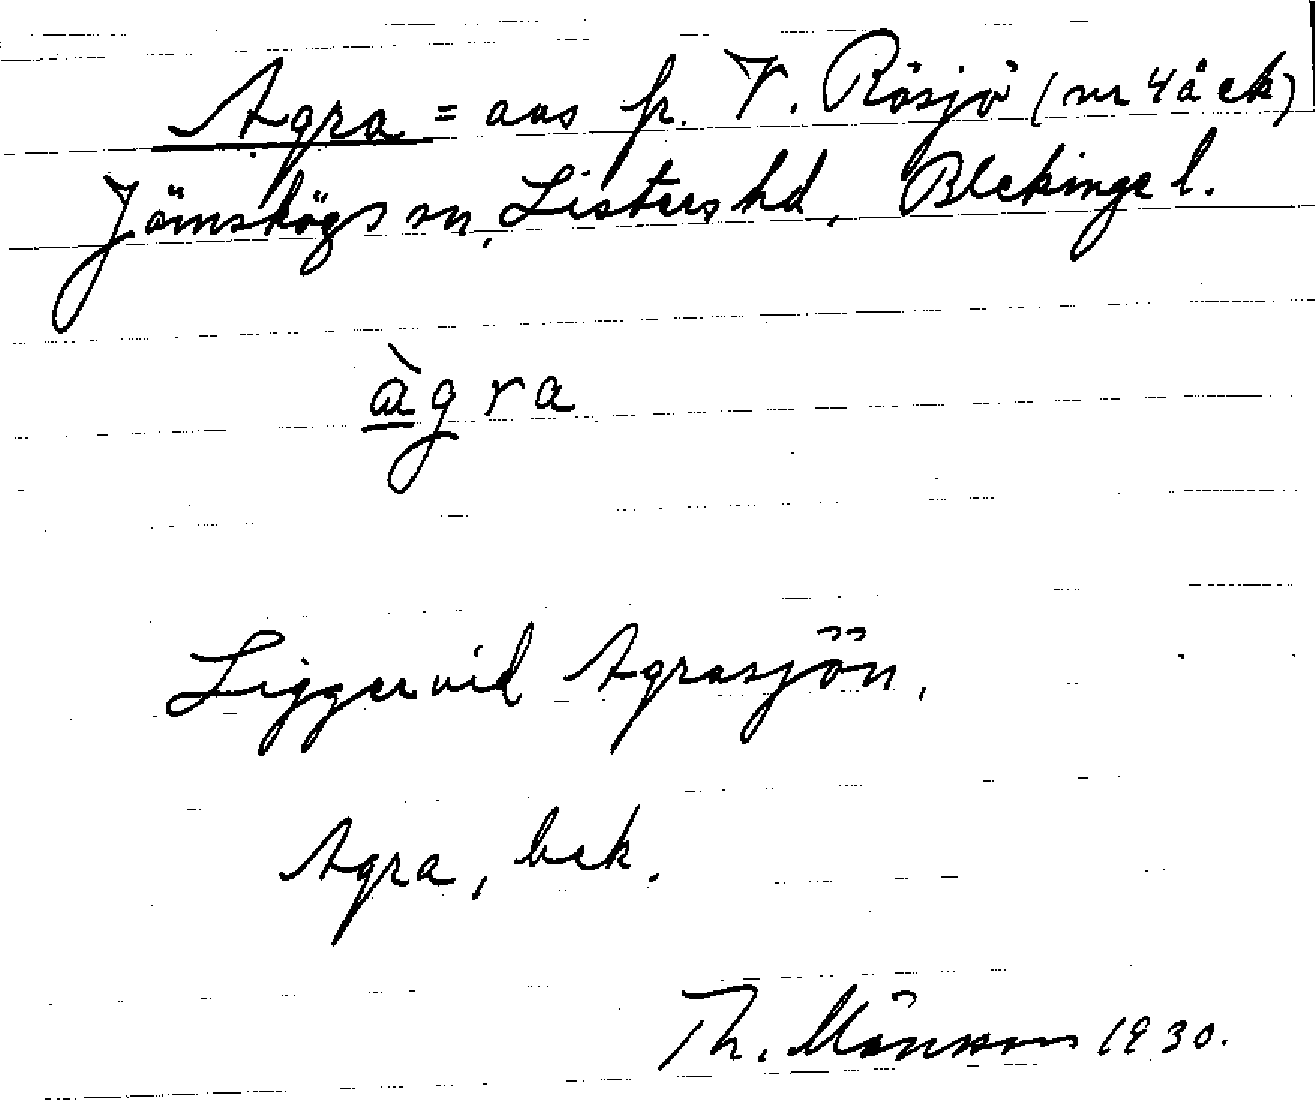 Agra = avs fr. V. Rösjö (nr 4 å ek)
Jämshögs sn, Listers hd, Blekinge l.
àgra
Ligger vid Agrasjön.
Agra, bek.
Th. Månsson 1930.